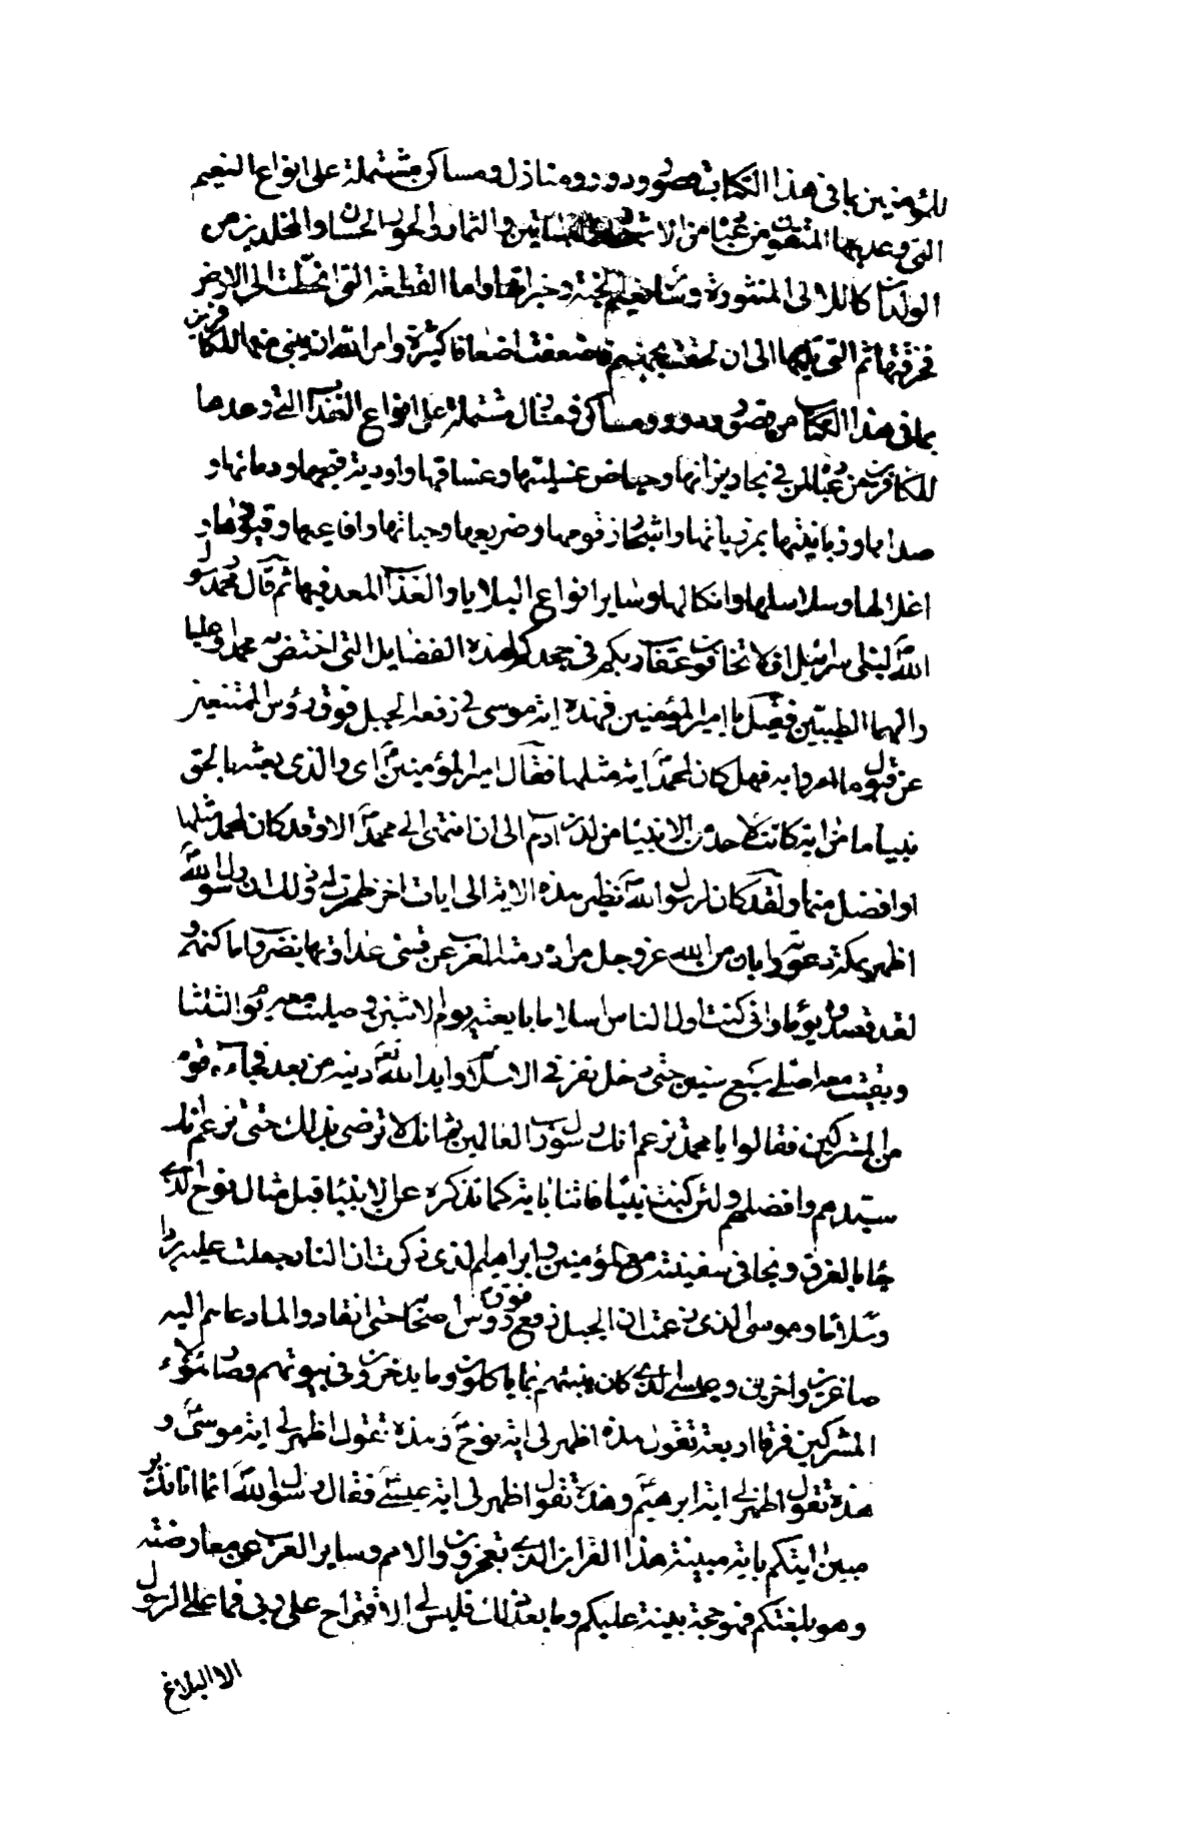 للمؤمنين بما في هذا الكتاب قصور ودور ومنازل ومساكن مشتملة على انواع النعيم
التي وعدبها المتقون من عباده من الاشجار والبساتين والثمار والحور الحسان والمخلدين من
الولدان كاللالى المنثورة وساير نعيم الجنة وخيراتها واما القطعة التي انحطت الى الارض
فخرقتها ثم التي تليها الى ان لحقت بجهنم فاضعفت اضعافا كثيرة وامر الله ان يبنى منها للكافرين
بما في هذا الكتاب من قصور ودور ومساكن ومنازل مشتملة على انواع العذاب التي وعدها
للكافرين من عباده من نيرانها وحياض غسلينها وغساقها واودية قيحها ودمائها و
صديدها وزبانيتها بمرزباتها واشجار زقومها وضريعها وحياتها وافاعيها وقيودها و
اغلالها وسلاسلها وانكالها وساير انواع البلايا والعذاب المعد فيها ثم قال محمد رسول
الله لبني اسرائيل افلا تخافون عقاب ربكم في جحدكم لهذه الفضايل التي اختص بها محمدا وعليا
والهما الطيبين فقيل يا امير المؤمنين فهذه اية موسى في رفعه الجبل فوق رؤس الممتنعين
عن قبول ما امروا به فهل كان لمحمد اية مثلها فقال امير المؤمنين اى والذى بعثه بالحق
نبيا ما من اية كانت لاحد من الانبيا من لدن آدم الى ان انتهى الى محمد الا وقد كان لمحمد مثلها
او افضل منها ولقد كان لرسول الله نظير هذه الاية الى ايات اخر ظهرت له وذلك ان رسول الله
اظهر بمكة دعوته وابان من الله عز وجل مراده رمته العرب عن قسى عداوتها بضروب امكانهم و
لقد قصدته يوما وانى كنت اول الناس اسلاما بايعته يوم الاثنين وصليت معه يوم الثلثا
وبقيت معه اصلى سبع سنين حتى دخل نفر في الاسلام وايد الله تعالى دينه من بعد فجاءه قوم
من المشركين فقالوا يا محمد تزعم انك رسول رب العالمين ثم انك لا ترضى بذلك حتى تزعم انك
سيدهم وافضلهم ولئن كنت نبيا فاتنا باية كما تذكره عن الانبيا قبل مثال نوح الذى
جا بالغرق ونجا في سفينته مع المؤمنين وابراهيم الذى ذكرت ان النار جعلت عليه بردا
وسلاما وموسى الذى زعمت ان الجبل رفع فوق رؤس اصحابه حتى انقادوا لما دعاهم اليه
صاغرين واخرين وعيسى الذى كان ينبئهم بما ياكلون وما يدخرون في بيوتهم وصار هؤلاء
المشركين فرقا اربعة تقول هذه اظهر لى اية نوح وهذه تقول اظهر لى اية موسى و
هذه تقول اظهر لى اية ابرهيم وهذه تقول اظهر لى اية عيسى فقال رسول الله انما انا نذير
مبين اتيتكم باية مبينة هذا القران الذى تعجزون والامم وساير العرب عن معارضته
وهو بلغتكم فهو حجة بينة عليكم وما بعد ذلك فليس لى الاقتراح على ربى فما على الرسول
الا البلاغ